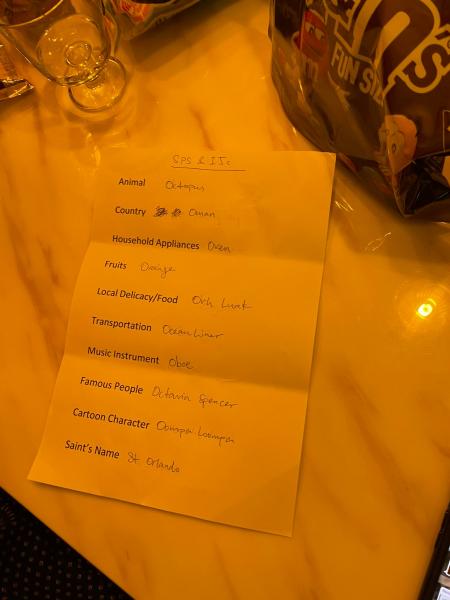 SPS & IJC
Animal Octopus
Country Oman
Household Appliances Oven
Fruits Orange
Local Delicacy/Food Orh Luak
Transportation Ocean Liner
Music Instrument Oboe
Famous People Octavia Spencer
Cartoon Character Oompa Loompa
Saint's Name St Orlando
FUN SIZE